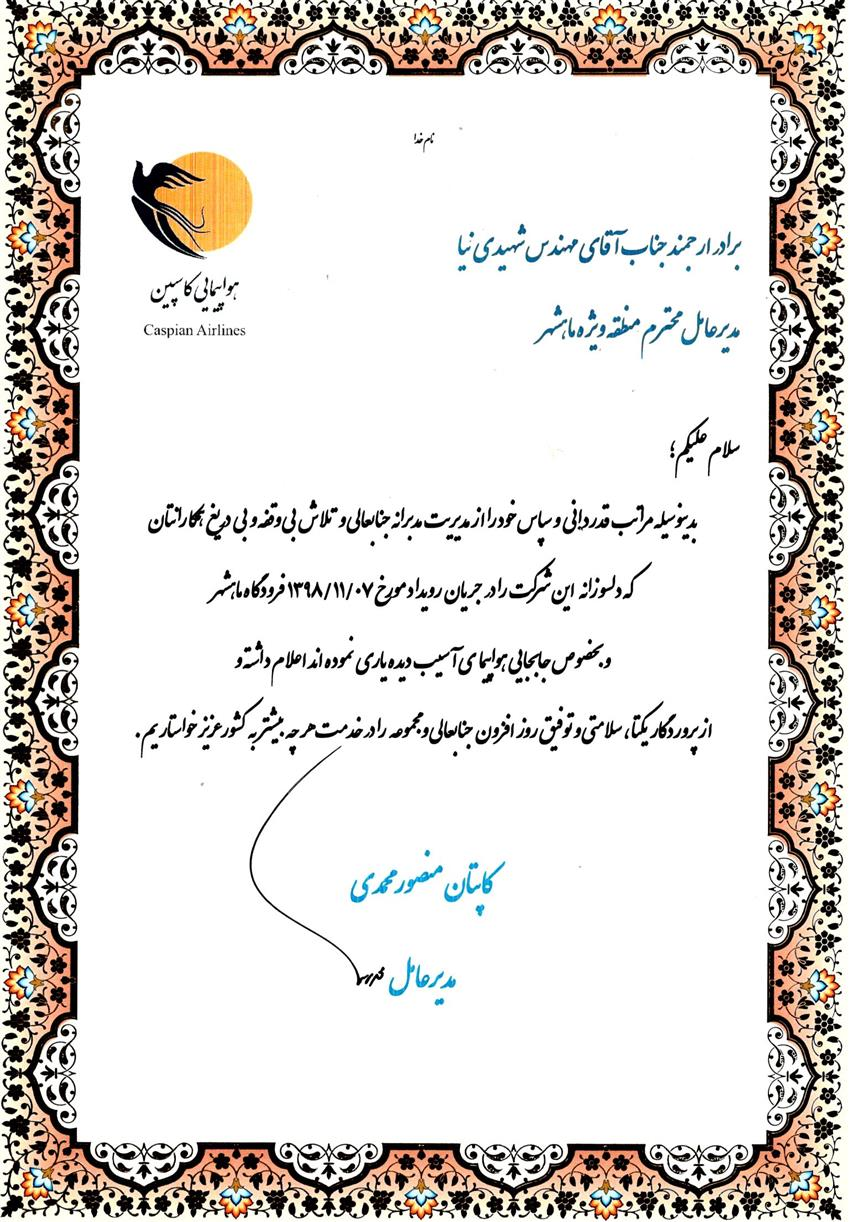 بنام خدا
هواپیمایی کاسپین
Caspian Airlines
برادر ارجمند جناب آقای مهندس شهیدی نیا
مدیرعامل محترم منطقه ویژه ماهشهر
سلام علیکم؛
بدینوسیله مراتب قدردانی و سپاس خود را از مدیریت مدبرانه جنابعالی و تلاش بی وقفه و بی دریغ همکارانتان
که دلسوزانه این شرکت را در جریان رویداد مورخ ۱۳۹۸/۱۱/۰۷ فرودگاه ماهشهر
و بخصوص جابجایی هواپیمای آسیب دیده یاری نموده اند اعلام داشته و
از پروردگار یکتا، سلامتی و توفیق روز افزون جنابعالی و مجموعه را در خدمت هر چه بیشتر به کشور عزیز خواستاریم.
کاپیتان منصور محمدی
مدیرعامل